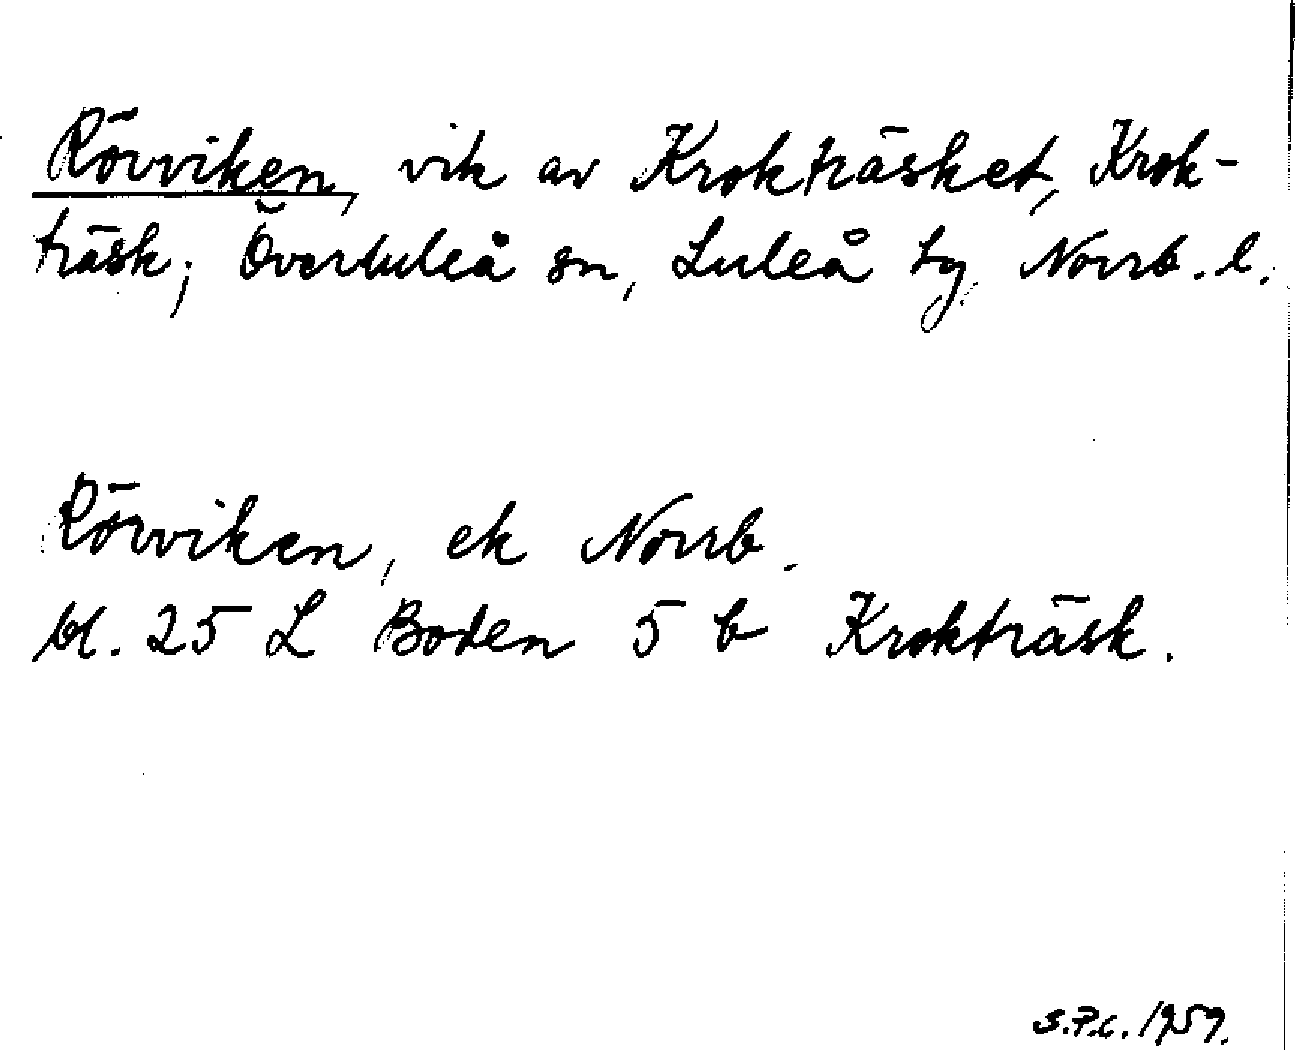 Rövviken, vik av Krokträsket, Krok-
träsk; Överluleå sn, Luleå tg Norrb. l.
Rövviken, ek Norrb.
bl. 25 L Boden 5 b Krokträsk.
S.P.C. 1959.